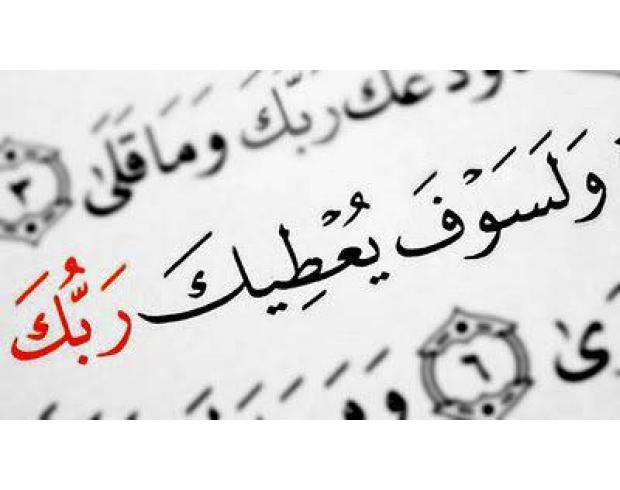 ودعك ربك وما قلى ٣
ولسوف يعطيك ربك
ى ٦